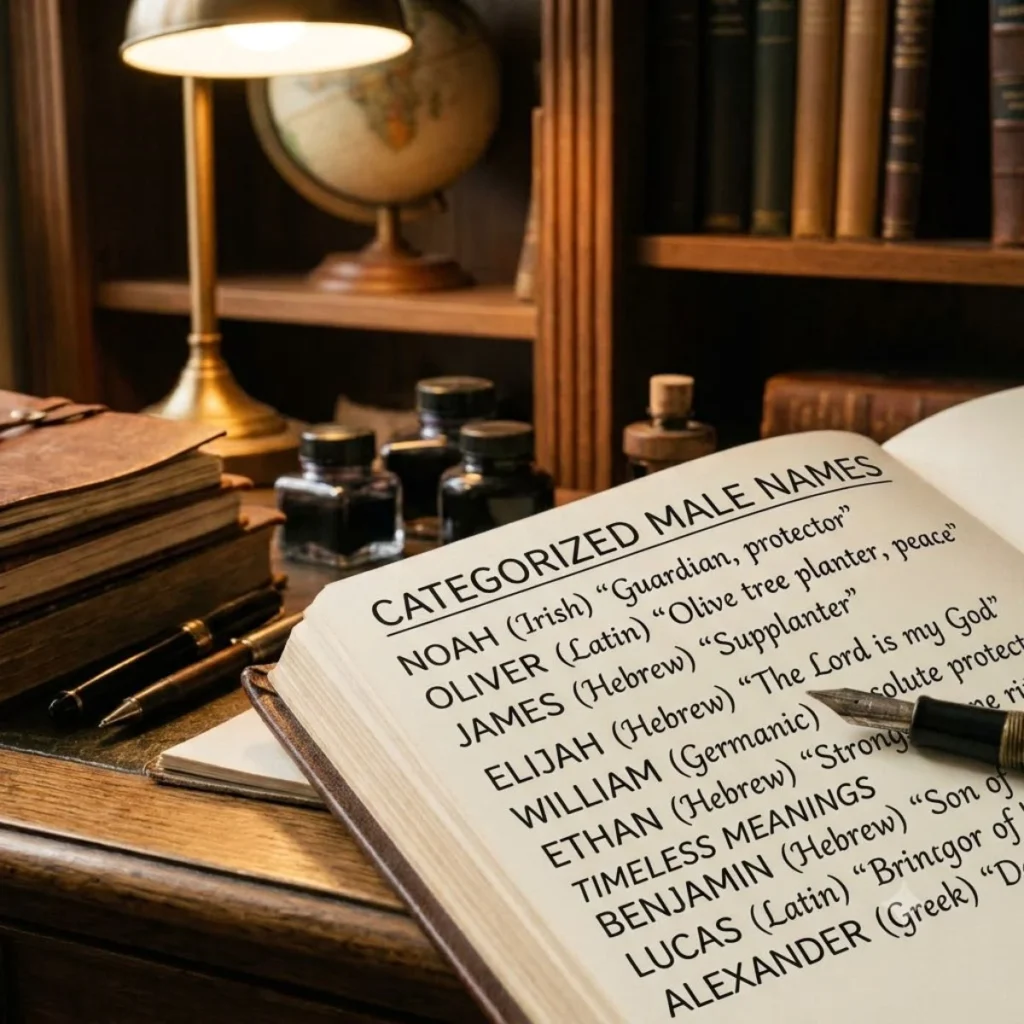 CATEGORIZED MALE NAMES
NOAH (Irish) “Guardian, protector”
OLIVER (Latin) “Olive tree planter, peace”
JAMES (Hebrew) “Supplanter”
ELIJAH (Hebrew) “The Lord is my God”
WILLIAM (Germanic) solute protect
ETHAN (Hebrew) “Strong
TIMELESS MEANINGS
BENJAMIN (Hebrew) “Son of
LUCAS (Latin) “Brincgor of
ALEXANDER (Greek)